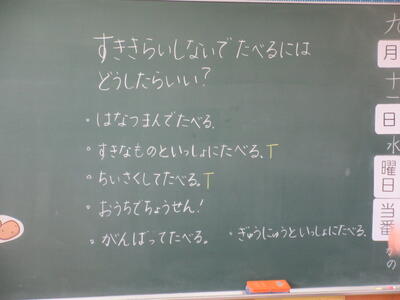 すききらいしないで たべるには
どうしたらいい?
・はなつまんでたべる。
・すきなものといっしょにたべる。T
・ちいさくしてたべる。T
・おうちでちょうせん!
・がんばってたべる。 ・ぎゅうにゅうといっしょにたべる。
九
月
十一
日
水
曜
日
当
番
の